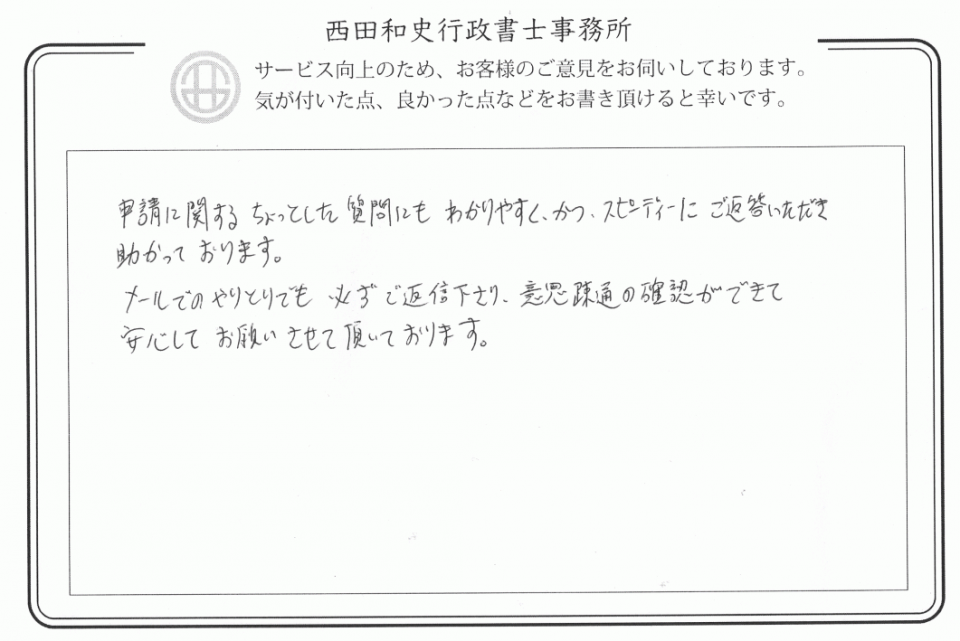 西田和史行政書士事務所
サービス向上のため、お客様のご意見をお伺いしております。
気が付いた点、良かった点などをお書き頂けると幸いです。
申請に関するちょっとした質問にもわかりやすく、かつ、スピーディーにご返答いただき
助かっております。
メールでのやりとりでも必ずご返信下さり、意思疎通の確認ができて
安心してお願いさせて頂いております。